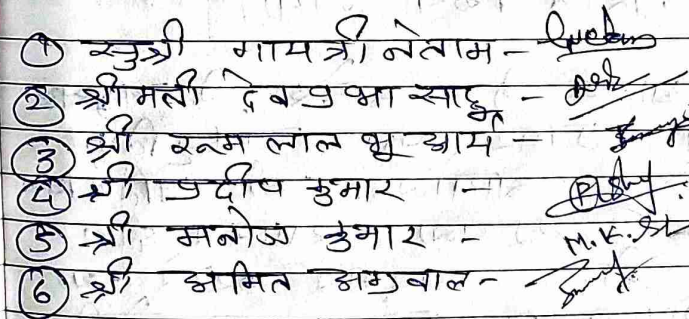 ① सुश्री गायत्री नेताम -
② श्रीमती देवप्रभा साहू -
③ श्री रूमलाल भूआर्य -
④ श्री प्रदीप कुमार -
⑤ श्री मनोज कुमार - M.K.
⑥ श्री अमित अग्रवाल -